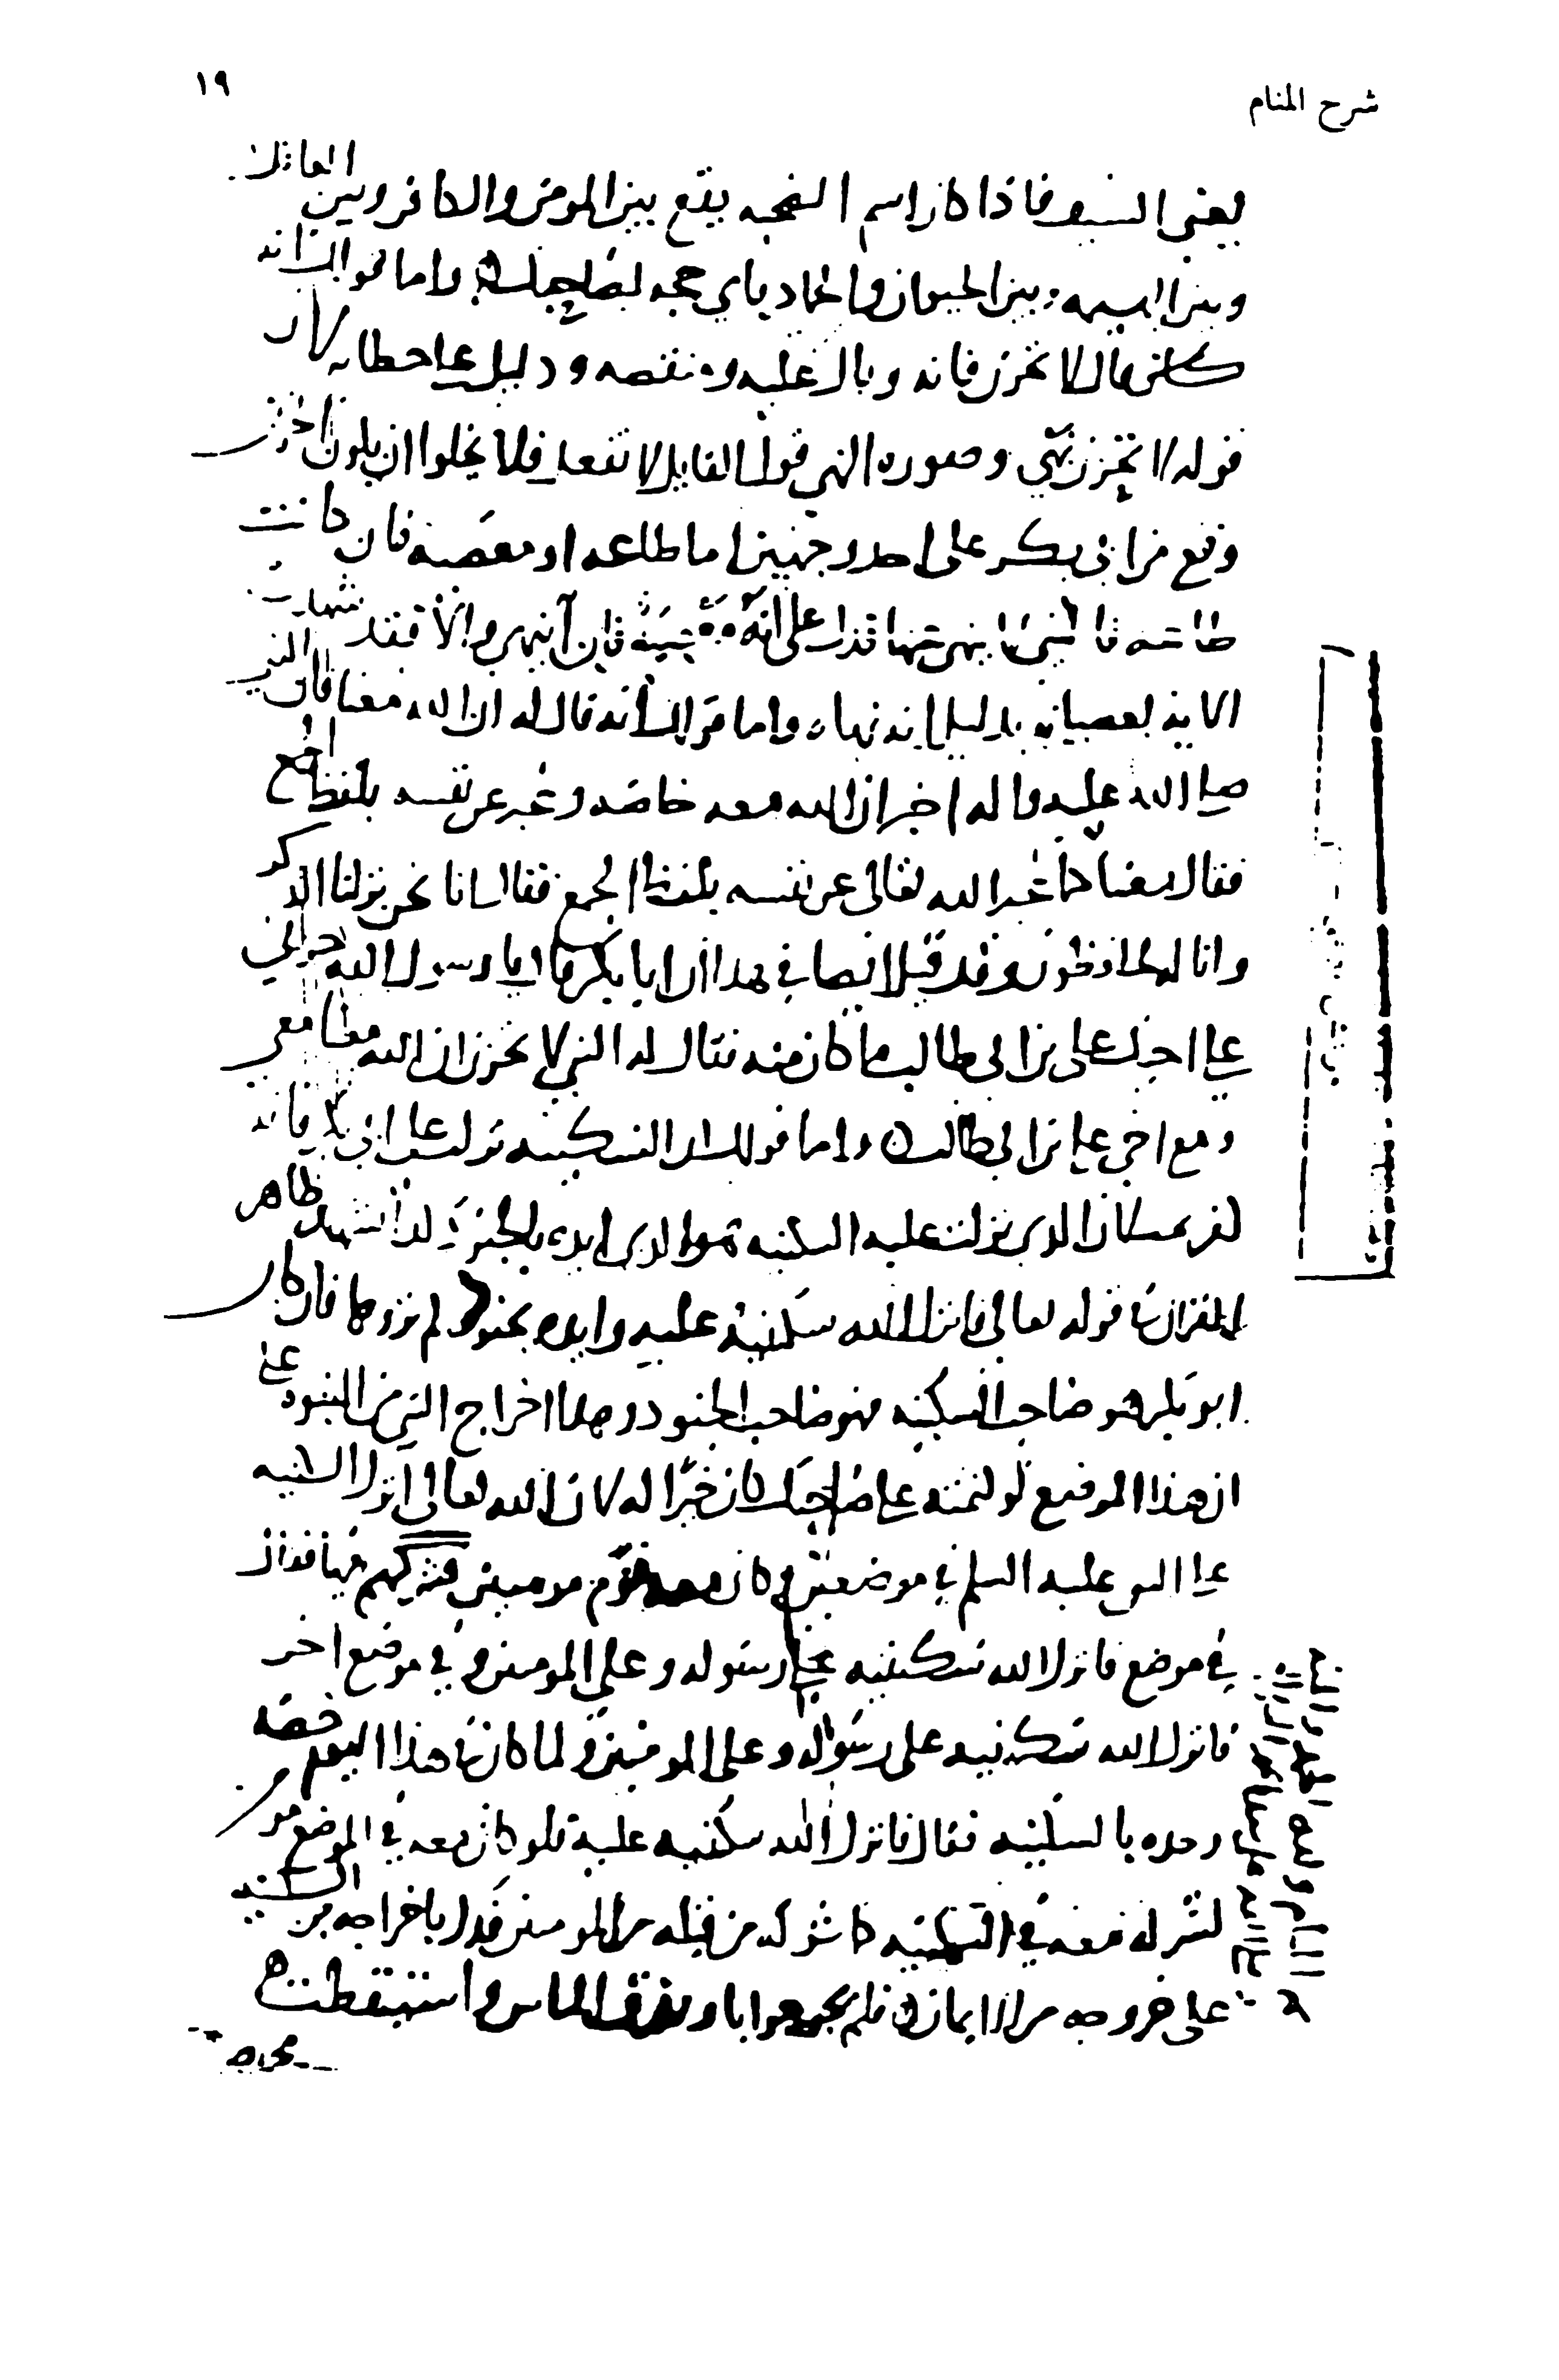 شرح المنام
١٩
يعني السيف فاذا كان اسم الصحبه يقع بين المومن والكافر وبين العاقل
وبين البهيمه وبين الحيوان والجماد فاي حجه لصاحبك واما قولك انه
قال لا تحزن فانه وبال عليه ومنقصه ودليل على خطائه لان
قوله لا تحزن نهي وصوره النهي قول القايل لا تفعل فلا يخلوا ان يكون الحزن
وقع من ابي بكر على احد وجهين اما طاعه او معصيه فان كانت
طاعه فالنبي لا ينهى عنها فدل على انه معصيه فان انتهى والا فقد شهدت
الايه بعصيانه بدليل انه نهاه واما قولك انه قال له ان الله معنا فان النبي
صلى الله عليه واله اخبر ان الله معه خاصه وعبر عن نفسه بلفظ الجمع
فقال معنا كما عبر الله تعالى عن نفسه بلفظ الجمع فقال انا نحن نزلنا الذكر
وانا له لحافظون وقد قيل ايضا في هذا ان ابا بكر قال يا رسول الله حزني
على اخيك علي بن ابي طالب ما كان منه فقال له النبي لا تحزن ان الله معنا معي
ومع اخي علي بن ابي طالب واما قولك ان السكينه نزلت على ابي بكر فانه
كفر لان الذي نزلت عليه السكينه هو الذي ايده بالجنود كذا شهد ظاهر
القران في قوله تعالى فانزل الله سكينته عليه وايده بجنود لم تروها فان كان
ابو بكر هو صاحب السكينه فهو صاحب الجنود وهذا اخراج النبي من النبوه على
ان هذا الموضع لو كتمته على صاحبك كان خيرا له لان الله تعالى انزل السكينه
على النبي عليه السلم في موضعين كان معه قوم مومنين فشركهم فيها فقال
في موضع فانزل الله سكينته على رسوله وعلى المومنين وفي موضع اخر
فانزل الله سكينته على رسوله وعلى المومنين ولما كان في هذا اليوم خصه
وحده بالسكينه فقال فانزل الله سكينته عليه فلو كان معه في الموضع مومن
لشركه معه في السكينه كما شركه من قبله من المومنين فدل باخراجه من السكينه
على خروجه من الايمان فلم يحر جوابا وتفرق الناس واستيقظت